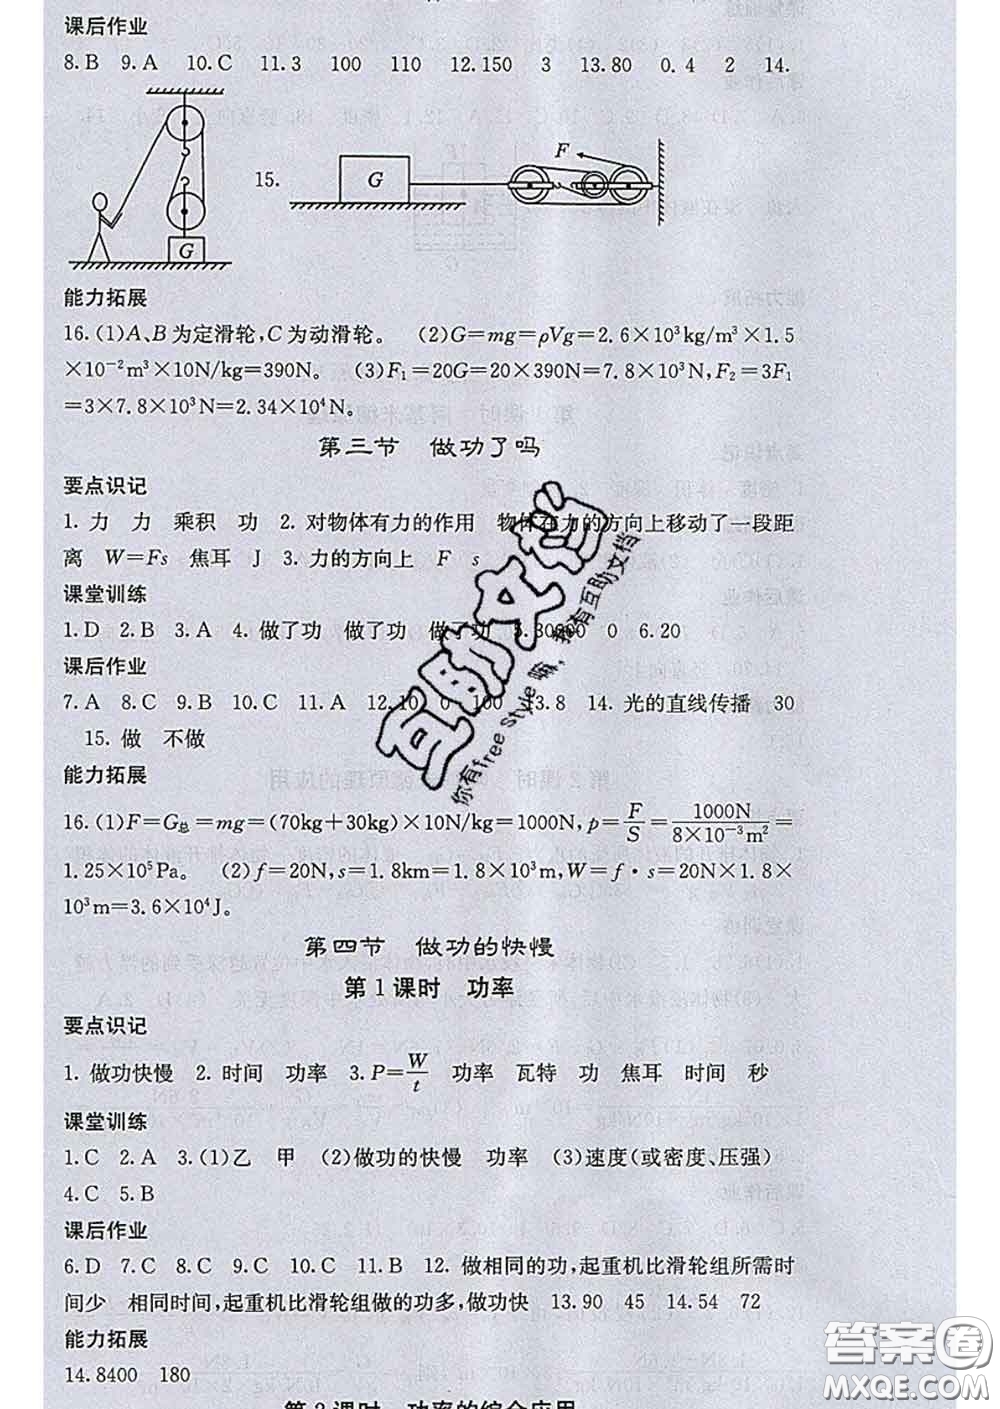 课后作业
8.B 9.A 10.C 11.3 100 110 12.150 3 13.80 0.4 2 14.
15.
G
F
G
能力拓展
16.(1)A、B为定滑轮,C为动滑轮。 (2)G=mg=ρVg=2.6×10³kg/m³×1.5
×10⁻²m³×10N/kg=390N。 (3)F₁=20G=20×390N=7.8×10³N,F₂=3F₁
=3×7.8×10³N=2.34×10⁴N。
第三节 做功了吗
要点识记
1. 力 力 乘积 功 2. 对物体有力的作用 物体在力的方向上移动了一段距
离 W=Fs 焦耳 J 3. 力的方向上 F s
课堂训练
1.D 2.B 3.A 4. 做了功 做了功 做了功 5.30000 0 6.20
课后作业
7.A 8.C 9.B 10.C 11.A 12.10 0 100 13.8 14. 光的直线传播 30
15. 做 不做
能力拓展
16.(1)F=G总=mg=(70kg+30kg)×10N/kg=1000N,p=F/S=1000N/8×10⁻³m²=
1.25×10⁵Pa。 (2)f=20N,s=1.8km=1.8×10³m,W=f·s=20N×1.8×
10³m=3.6×10⁴J。
第四节 做功的快慢
第1课时 功率
要点识记
1. 做功快慢 2. 时间 功率 3.P=W/t 功率 瓦特 功 焦耳 时间 秒
课堂训练
1.C 2.A 3.(1)乙 甲 (2)做功的快慢 功率 (3)速度(或密度、压强)
4.C 5.B
课后作业
6.D 7.C 8.C 9.C 10.C 11.B 12. 做相同的功,起重机比滑轮组所需时
间少 相同时间,起重机比滑轮组做的功多,做功快 13.90 45 14.54 72
能力拓展
14.8400 180
第2课时 功率的综合应用
互助文档
你有free Style嘛,我有互助文档
答案圈
MXQE.COM